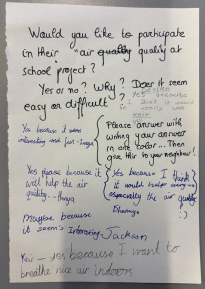 Would you like to participate
in their "air quality quality at
school project?
Yes or no? Why? Does it seem
easy or difficult?
Yes because it seems
interesting and fun
Please answer with
writing your answer
in one color... Then
give this to your neighbour!
Yes please because it
will help the air
quality.
Yes because I think
it would help
especially the air quality
:)
Maybe because
it seem's interesting Jackson
yes because I want to
breathe nice air indoors